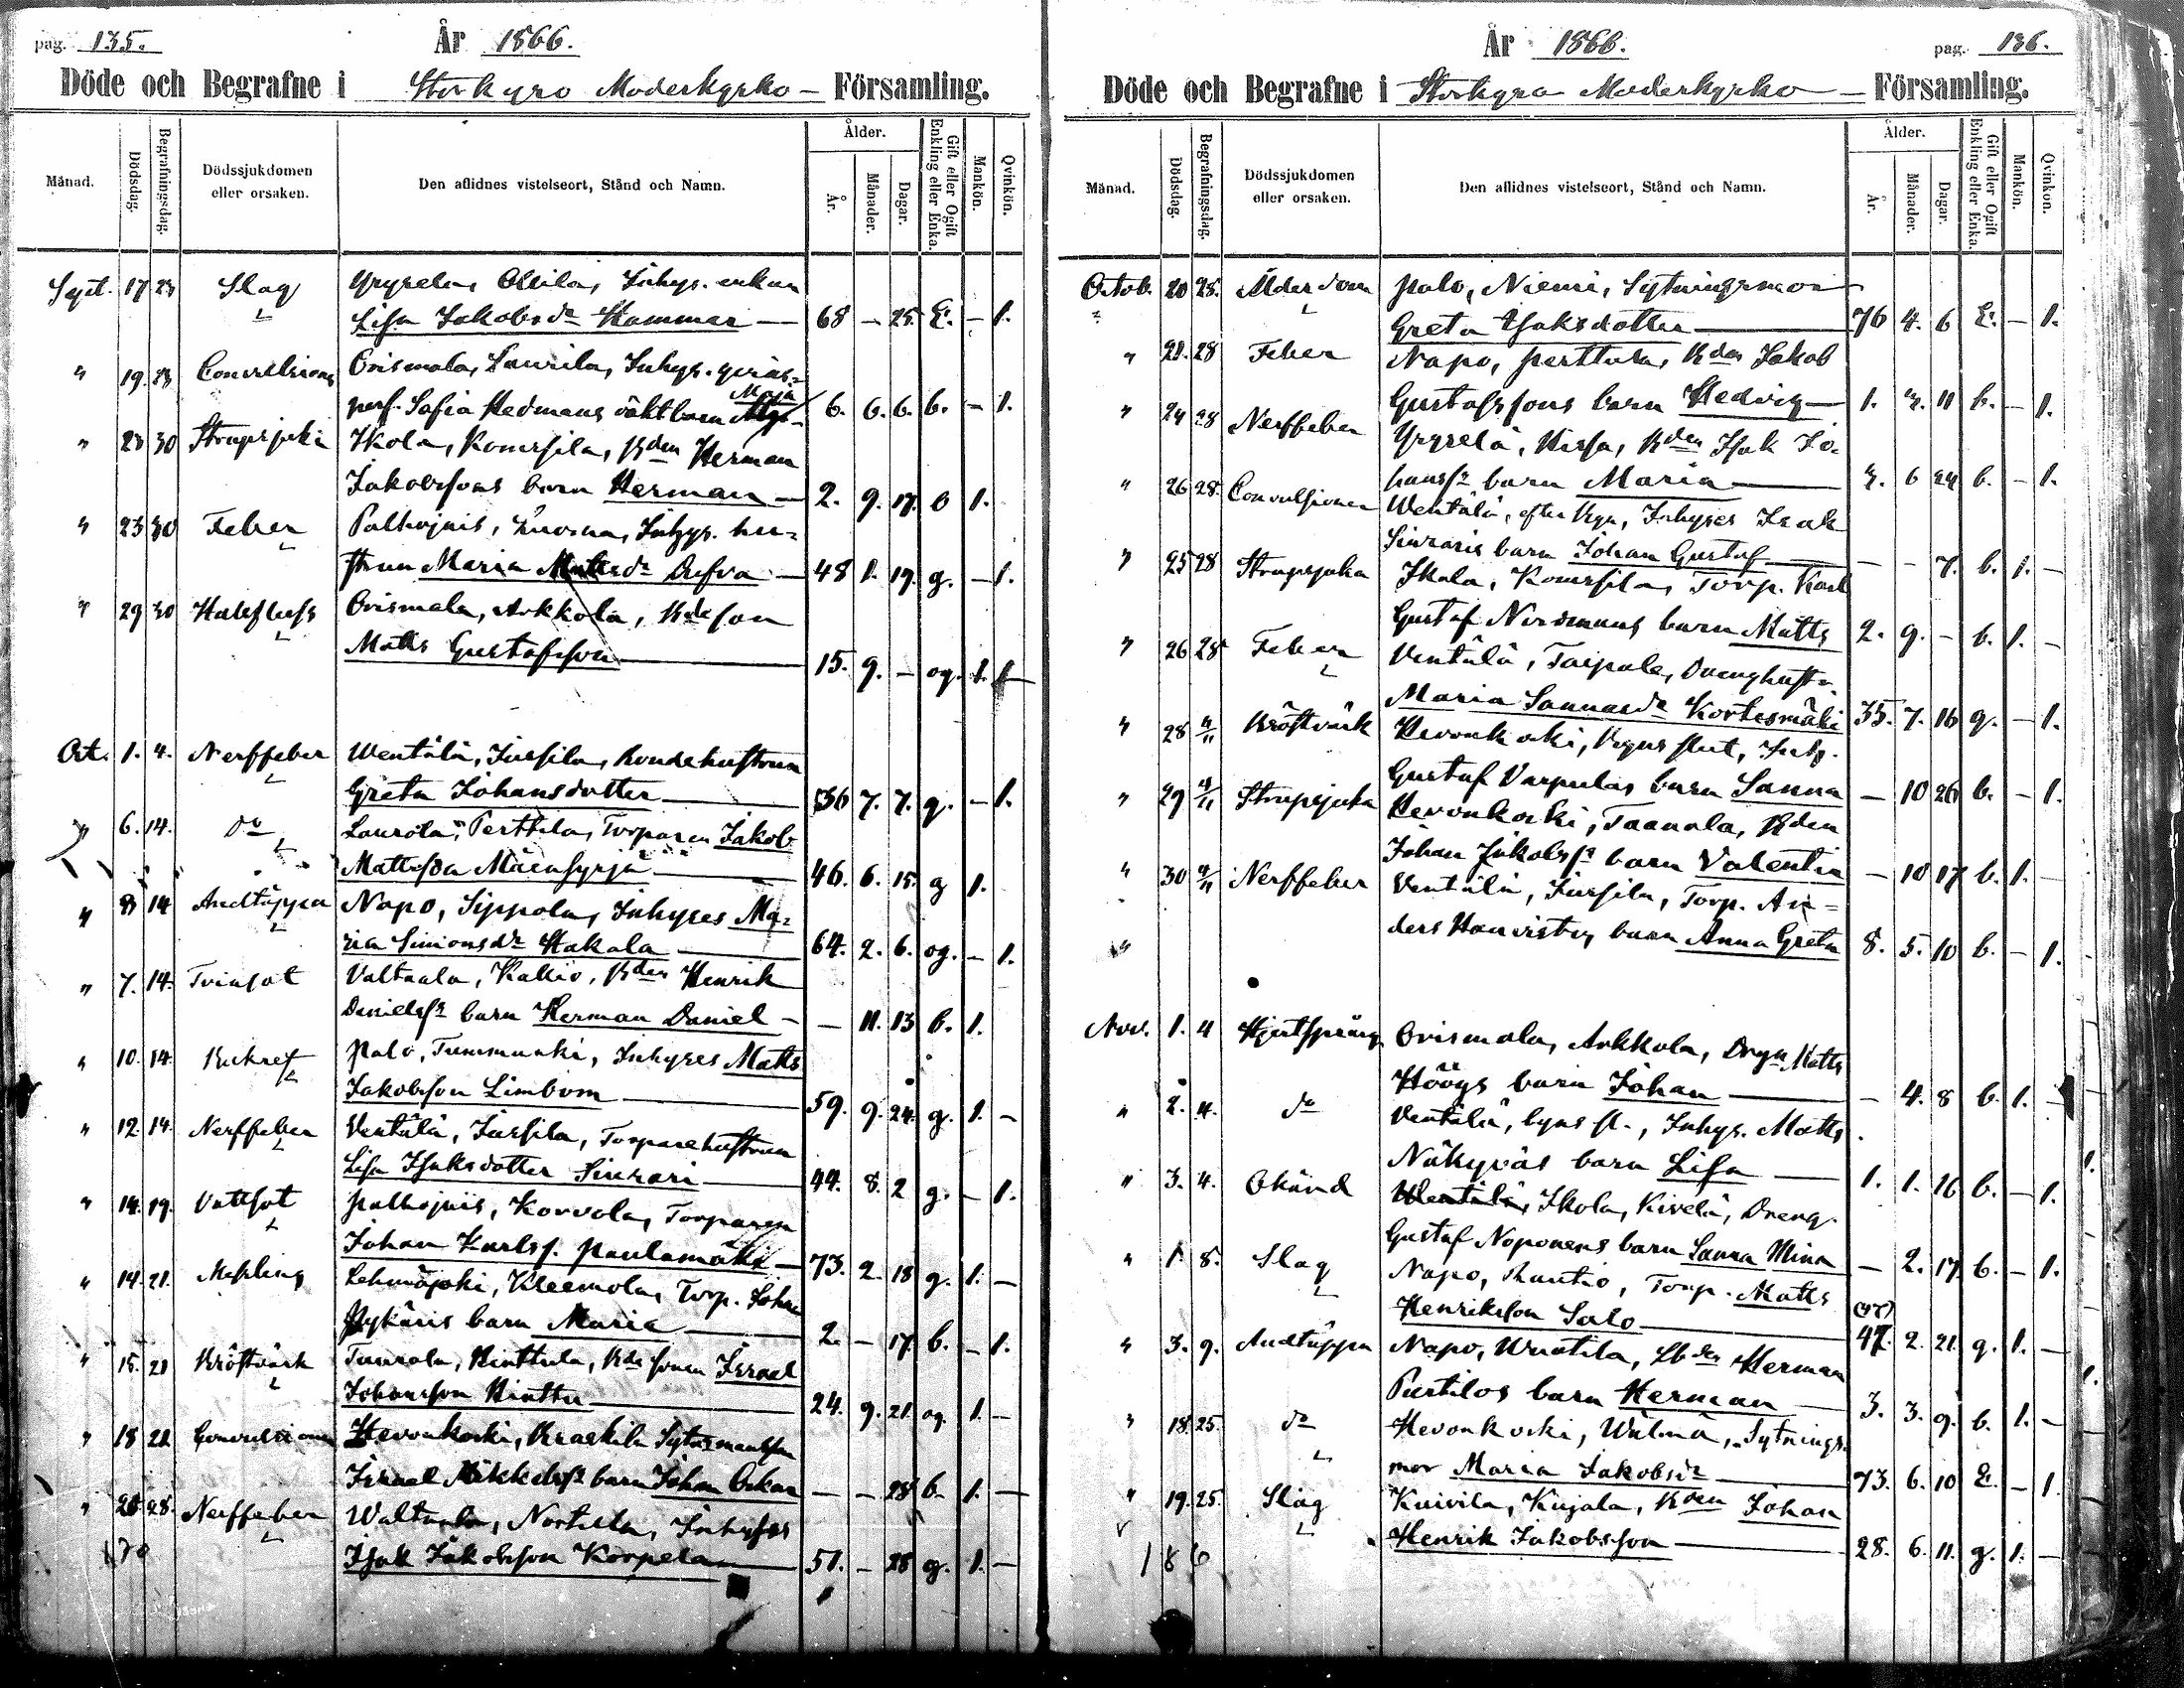 pag. 135.
År 1866.
Döde och Begrafne i Storkyro Moderkyrko- Församling.
Månad.
Dödsdag.
Begrafningsdag.
Dödssjukdomen
eller orsaken.
Den aflidnes vistelseort, Stånd och Namn.
Ålder.
År.
Månader.
Dagar.
Gift eller Ogift
Enkling eller Enka.
Mankön.
Qvinkön.
Sept. 17 23 Slag Yryselä, Ollila, Inhys. enkan
Lisa Jakobsdr Hammar — 68 — 25. E. — 1.
" 19. 23 Convulsions Orismala, Laurila, Inhys. qvins-
pers. Sofia Hedmans oäkt barn Maja 6. 6. 6. b. — 1.
" 23 30 Strupsjuka Ikola, Komsila, Bden Herman
Jakobssons barn Herman — 2. 9. 17. b 1.
" 23 30 Feber Palhojais, Inhys. hu-
strun Maria Mattsdr — 48 1. 19. g. — 1.
" 29 30 Halsfluss Orismala, Arkkola, Bdeson
Matts Gustafsson — 15. 9. — og. 1. 1
Oct. 1. 4. Nerffeber Wentälä, Jussila, bondehustrun
Greta Johansdotter — 36 7. 7. g. — 1.
" 6. 14. do Laurola, Perttila, Torparen Jakob
Mattsson Mäensyrjä — 46. 6. 15. g 1.
" 8 14 Andtäppa Napo, Sippola, Inhyses Ma-
ria Simonsdr Hakala — 64. 2. 6. og. — 1.
" 7. 14. Tvinsot Valtaala, Kallio, Bden Henrik
Danielsss barn Herman Daniel — — 11. 13 b. 1.
" 10. 14. Bukref Palo, Tummunki, Inhyses Matts
Jakobsson Limbom — 59. 9. 24. g. 1. —
" 12. 14. Nerffeber Ventälä, Jussila, Torparehustrun
Lisa Isaksdotter Sinrari — 44. 8. 2 g. — 1.
" 14. 19. Vattsot Palhojais, Korvola, Torparen
Johan Karlss. Paulamäki — 73. 2. 18 g. 1. —
" 14. 21. Messling Lehmäjoki, Kleemola, Torp. Johan
Pykäris barn Maria — 2. — 17. b. — 1.
" 15. 21 Bröstvärk Tuurala, Hinttula, Bdesonen Israel
Johansson Hinttu — 24. 9. 21. og. 1. —
" 18 21 Convulsioner Hevonkoski, Kraekila
Israel barn Johan Oskar — — 28 b. 1. —
28. Nerffeber Waltaala, Norkela, Inhyses
Isak Jakobsson Korpela — 51. — 28 g. 1. —
pag. 136.
År 1866.
Döde och Begrafne i Storkyro Moderkyrko — Församling.
Månad.
Dödsdag.
Begrafningsdag.
Dödssjukdomen
eller orsaken.
Den aflidnes vistelseort, Stånd och Namn.
Ålder.
År.
Månader.
Dagar.
Gift eller Ogift
Enkling eller Enka.
Mankön.
Qvinkon.
Octob. 20 25. Ålderdom Palo, Niemi, Sytningsmor
Greta Isaksdotter — 76 4. 6 E. — 1.
" 21. 28 Feber Napo, Perttula, Bden Jakob
Gustafssons barn Hedvig — 1. 3. 11 b. — 1.
" 24 28 Nerffeber Yryselä, Kirsa, Bden Isak Jo-
hanss barn Maria — 3. 6 24 b. — 1.
" 26 28. Convulsioner Wentälä, Inhyses Isak
Sinraris barn Johan Gustaf — — — 7. b. 1. —
" 25 28 Strupsjuka Ikola, Komsila, Torp. Karl
Gustaf Nordmans barn Matts 2. 9. — b. 1. —
" 26 28 Feber Ventälä, Taipale, Drenghustr.
Maria Sannasdr Kortesmäki 35. 7. 16 g. — 1.
" 28 4/11 Bröstvärk Hevonkoski, Inh.
Gustaf Varpulas barn Sanna — 10 26 b. — 1.
" 29 4/11 Strupsjuka Hevonkoski, Taanala, Bden
Johan Jakobss barn Valentin — 10 17 b. 1. —
" 30 4/11 Nerffeber Ventälä, Jussila, Torp. An-
ders barn Anna Greta 8. 5. 10 b. — 1.
Nov. 1. 4 Hjertsprång Orismala, Arkkola, Drgn Matts
Höögs barn Johan — — 4. 8 b. 1. —
" 2. 4. do Ventälä, byns sl., Inhys. Matts
Näkyväs barn Lisa — 1. 1. 16 b. — 1.
" 3. 4. Okänd Wentälä, Ikola, Kivelä, Dreng.
Gustaf Noponens barn Sanna Mina — 2. 17 b. — 1.
" 1. 8. Slag Napo, Rautio, Torp. Matts
Henriksson Salo — (47) 47. 2. 21. g. 1. —
" 3. 9. Andtäppa Napo, Wuotila, Lbden Herman
Purtilos barn Herman — 3. 3. 9. b. 1. —
" 18. 25. do Hevonkoski, Wälmä, Sytnings-
mor Maria Jakobsdr — 73. 6. 10 E. — 1.
" 19. 25. Slag Kuivila, Kujala, Bden Johan
Henrik Jakobsson — 28. 6. 11. g. 1. —
186